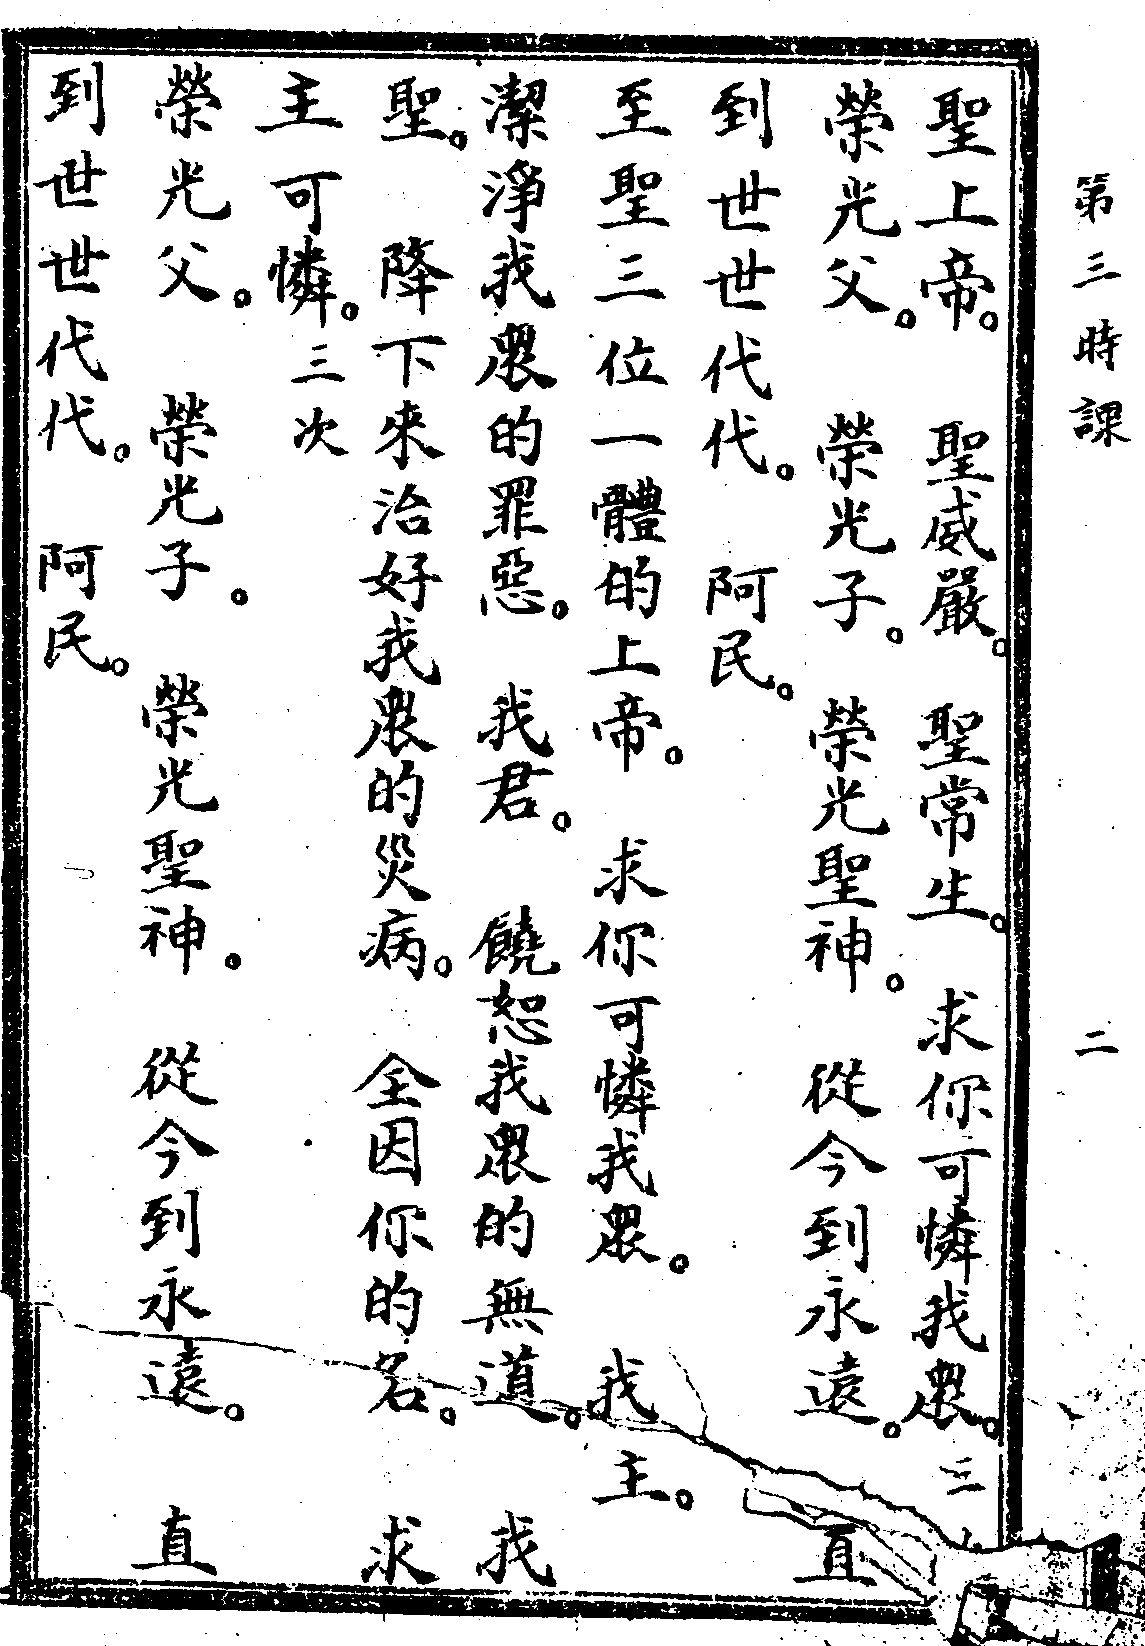 第三時課 二
聖上帝。 聖威嚴。 聖常生。 求你可憐我眾。三
榮光父。 榮光子。 榮光聖神。 從今到永遠。 直
到世世代代。 阿民。
至聖三位一體的上帝。 求你可憐我眾。 我主。
潔淨我眾的罪惡。 我君。 饒恕我眾的無道。 我
聖。 降下來治好我眾的災病。 全因你的名。 求
主可憐。三次
榮光父。 榮光子。 榮光聖神。 從今到永遠。 直
到世世代代。 阿民。